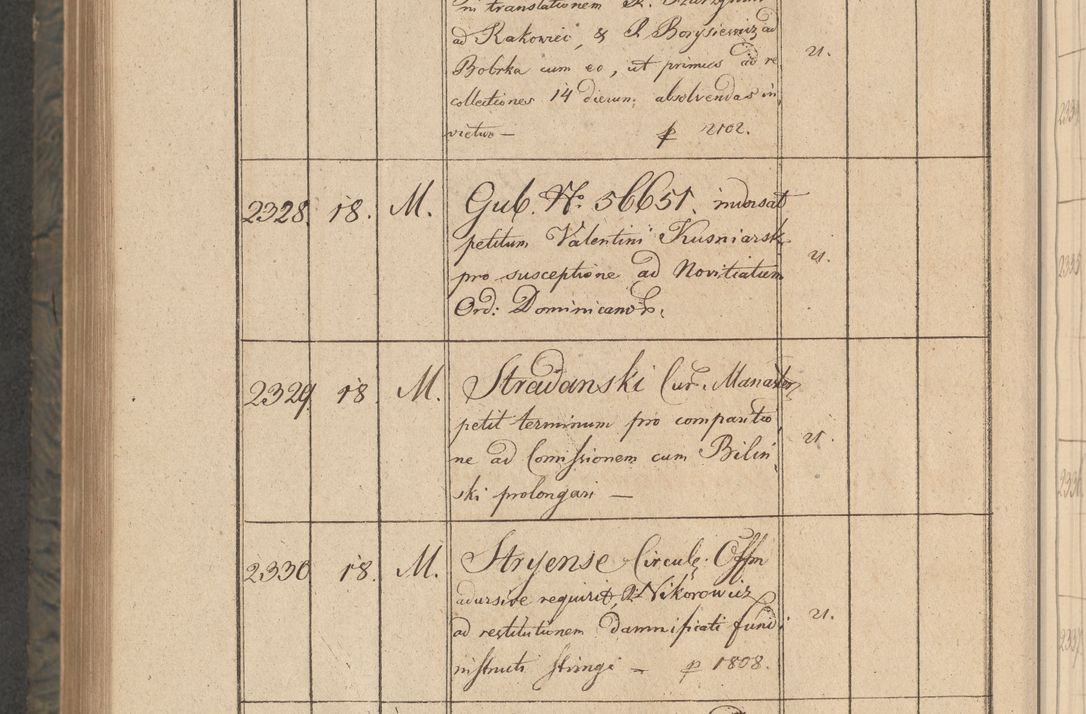 ni translationem R.
ad Rakowiec, & P. Borysiewicz ad
Bobrka cum eo, ut primus ad re
collectiones 14 dierum absolvendas in
vietur — p 2102.
21.
2328. 18. M. Gub. No. 56651. indorsat
petitum Valentini Kusniarsk
pro susceptione ad Novitiatum
Ord: Dominicanor.
21.
2329 18. M. Stradanski Cur. Manaster
petit terminum pro comparitio
ne ad Comissionem cum Bilin
ski prolongari —
21.
2330 18. M. Stryense Circul. Offm
adursive requirit, P. Nikorowicz
ad restitutionem damnificati fundi
nistructi stringi — p 1808.
21.